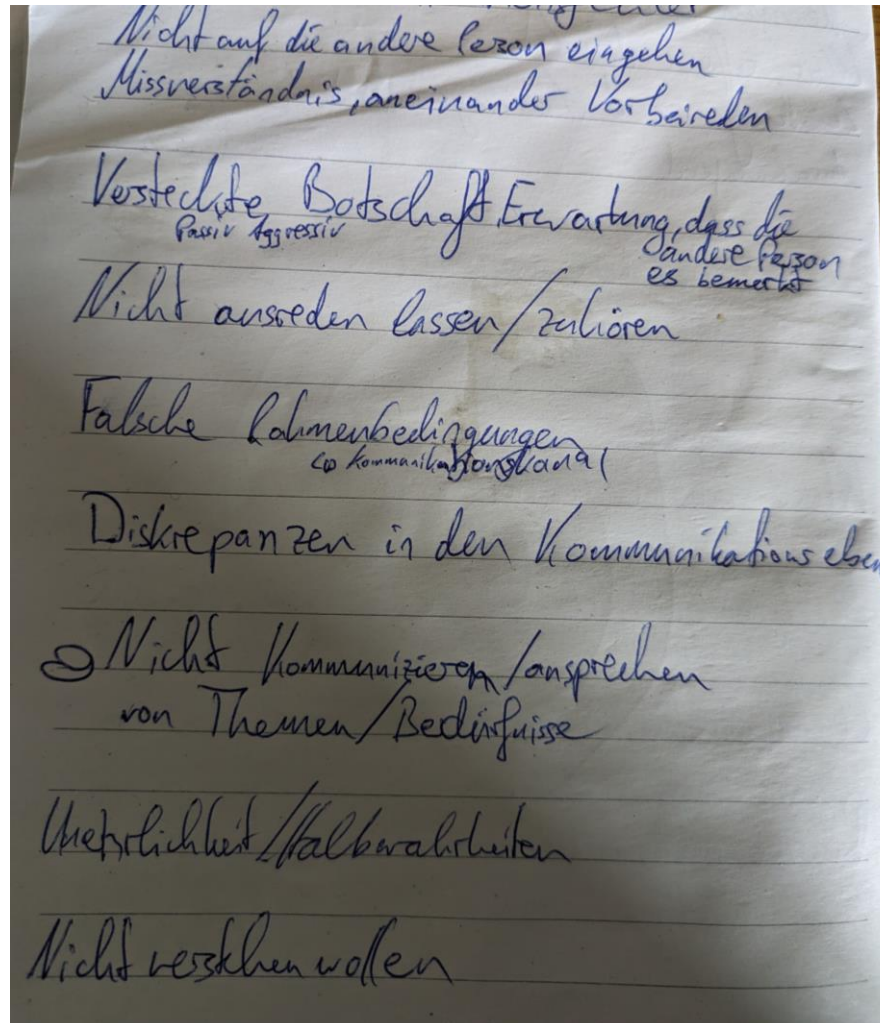 Nicht auf die andere Person eingehen
Missverständnis, aneinander Vorbeireden
Versteckte Botschaft, Erwartung, dass die
Passiv Aggressiv
andere Person
es bemerkt
Nicht ausreden lassen/zuhören
Falsche Rahmenbedingungen
↳ Kommunikationskanal
Diskrepanzen in den Kommunikationseben
Nicht Kommunizieren/ansprechen
von Themen/Bedürfnisse
Unehrlichkeit/Halbwahrheiten
Nicht verstehen wollen